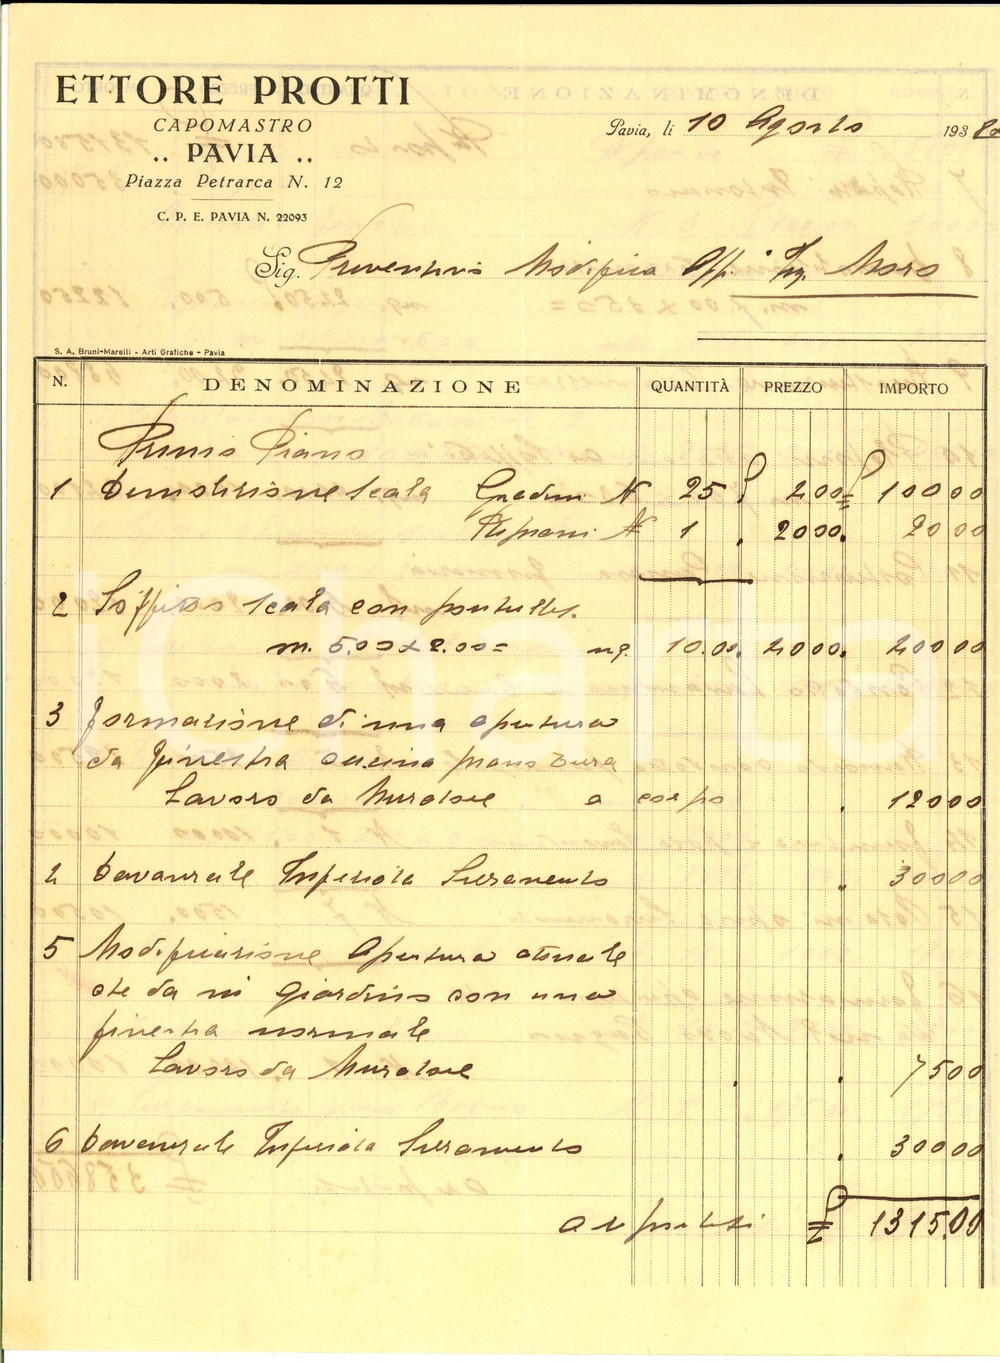 ETTORE PROTTI
CAPOMASTRO
.. PAVIA ..
Piazza Petrarca N. 12
C. P. E. PAVIA N. 22093
Pavia, li 10 Agosto 193
Sig. Preventivo Modifica App. Ing. Moro
S. A. Bruni-Marelli - Arti Grafiche - Pavia
N. DENOMINAZIONE QUANTITÀ PREZZO IMPORTO
Primo Piano
1 Demolizione scala Gradini N 25 £ 400 £ 10000
Ripiani N 1 2000. 2000
2 Soffitto scala con
m. 5.00 x 2.00 = mq. 10.00. 2000. 20000
3 formazione di una apertura
da finestra cucina piano
Lavoro da Muratore a corpo 12000
Davanzale Serramento 30000
5 Modificazione Apertura attuale
che da in giardino con una
finestra normale
Lavoro da Muratore 7500
6 Davanzale Serramento 30000
a riportarsi £ 1315.00